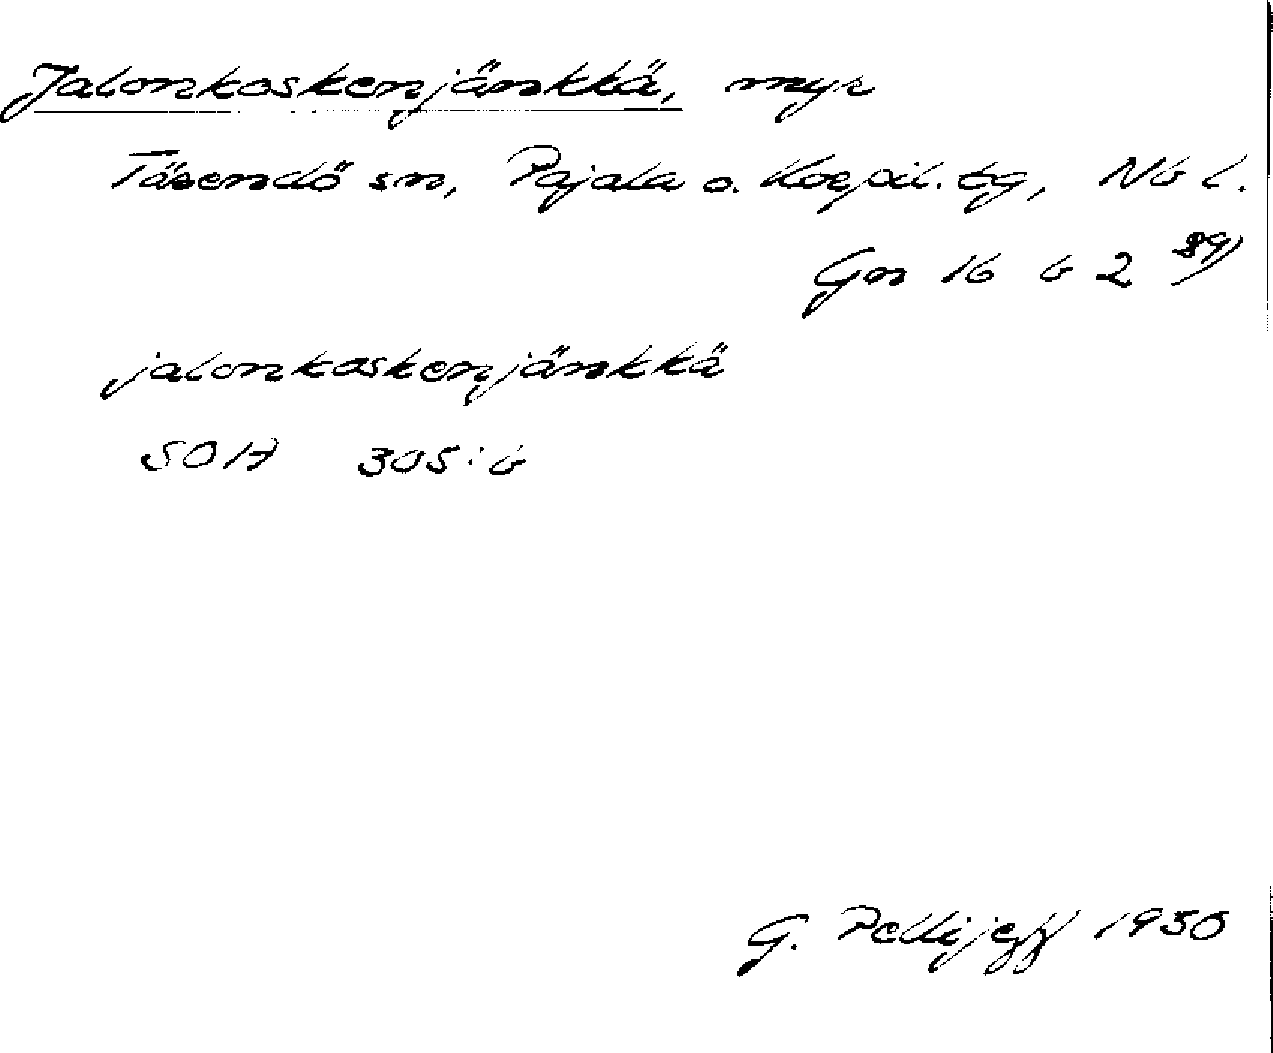 Jalonkoskenjänkkä, myr
Tärendö sn, Pajala o. Korpil. tg, Nb l.
Gn 16 b 2 39)
jalonkoskenjänkkä
SOA 305:6
G. Pellijeff 1950